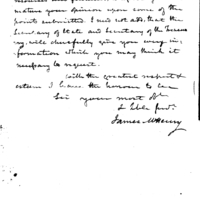 mature your opinion upon some of the
points submitted. I need not add, that the
Secretary of State and Secretary of the Treasu
ry, will cheerfully give you any in
formation which you may think it
necessary to request.
With the greatest respect &
esteem I have the honour to be
Sir your most Ob
& hble servt.
James McHenry